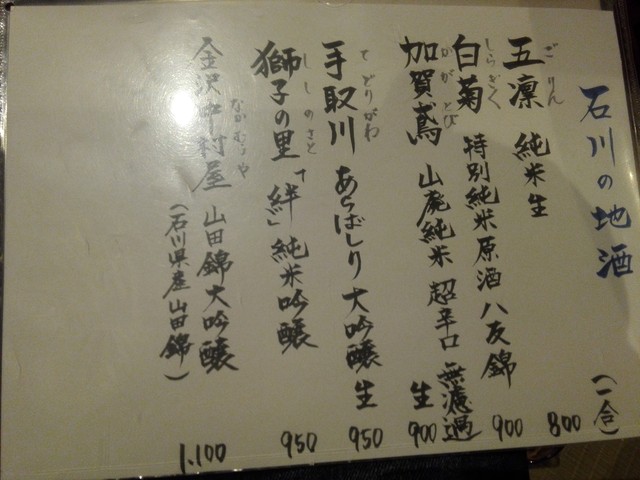 石川の地酒
(一合)
ごりん
五凛 純米生 800
しらぎく
白菊 特別純米原酒 八反錦 900
かがとび
加賀鳶 山廃純米 超辛口 無濾過
生 900
てどりがわ
手取川 あらばしり 大吟醸生 950
ししのさと
獅子の里 「絆」 純米吟醸 950
なかむらや
金沢中村屋 山田錦大吟醸 1.100
(石川県産山田錦)